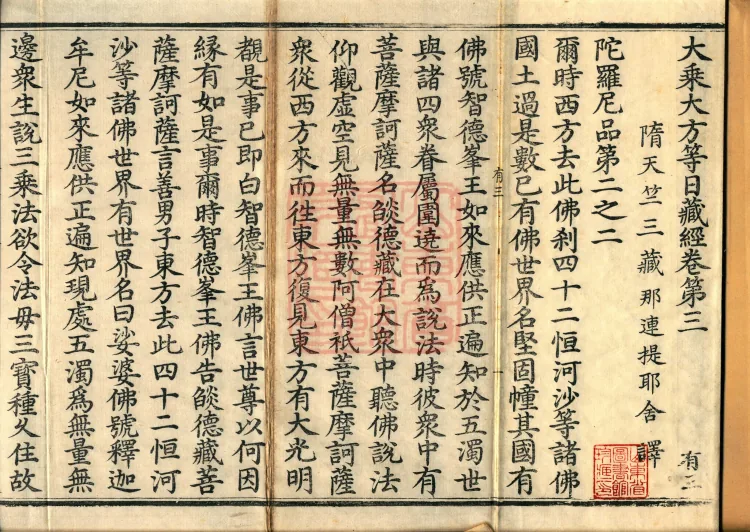 大乘大方等日藏經卷第三 有三
隋天竺三藏那連提耶舍譯
陀羅尼品第二之二
爾時西方去此佛刹四十二恒河沙等諸佛
國土過是數已有佛世界名堅固幢其國有
佛號智德峯王如來應供正遍知於五濁世
有三
與諸四衆眷屬圍遶而爲說法時彼衆中有
菩薩摩訶薩名㷿德藏在大衆中聽佛說法
仰觀虛空見無量無數阿僧祇菩薩摩訶薩
衆從西方來而往東方復見東方有大光明
覩是事已即白智德峯王佛言世尊以何因
緣有如是事爾時智德峯王佛告㷿德藏菩
薩摩訶薩言善男子東方去此四十二恒河
沙等諸佛世界有世界名曰娑婆佛號釋迦
牟尼如來應供正遍知現處五濁爲無量無
邊衆生說三乘法欲令法母三寶種久住故